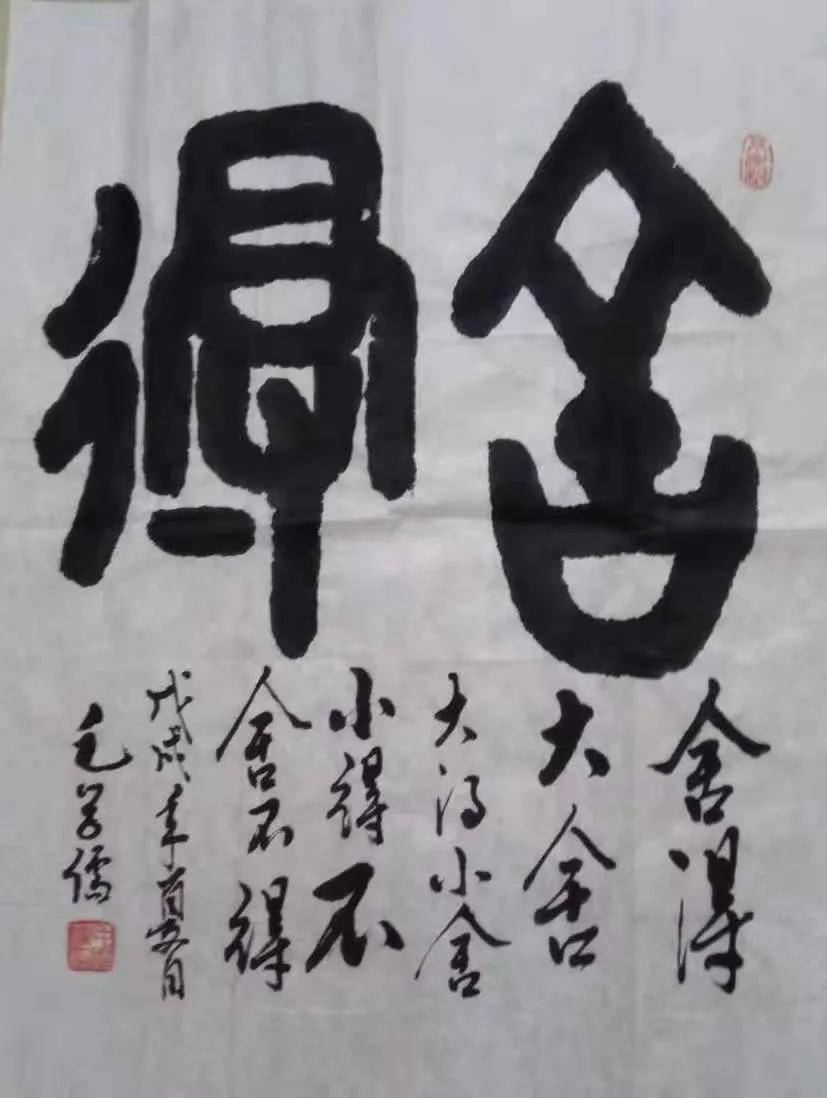 舍得
舍得
大舍
大得小舍
小得不
舍不得
戊戌年首夏月
毛学儒